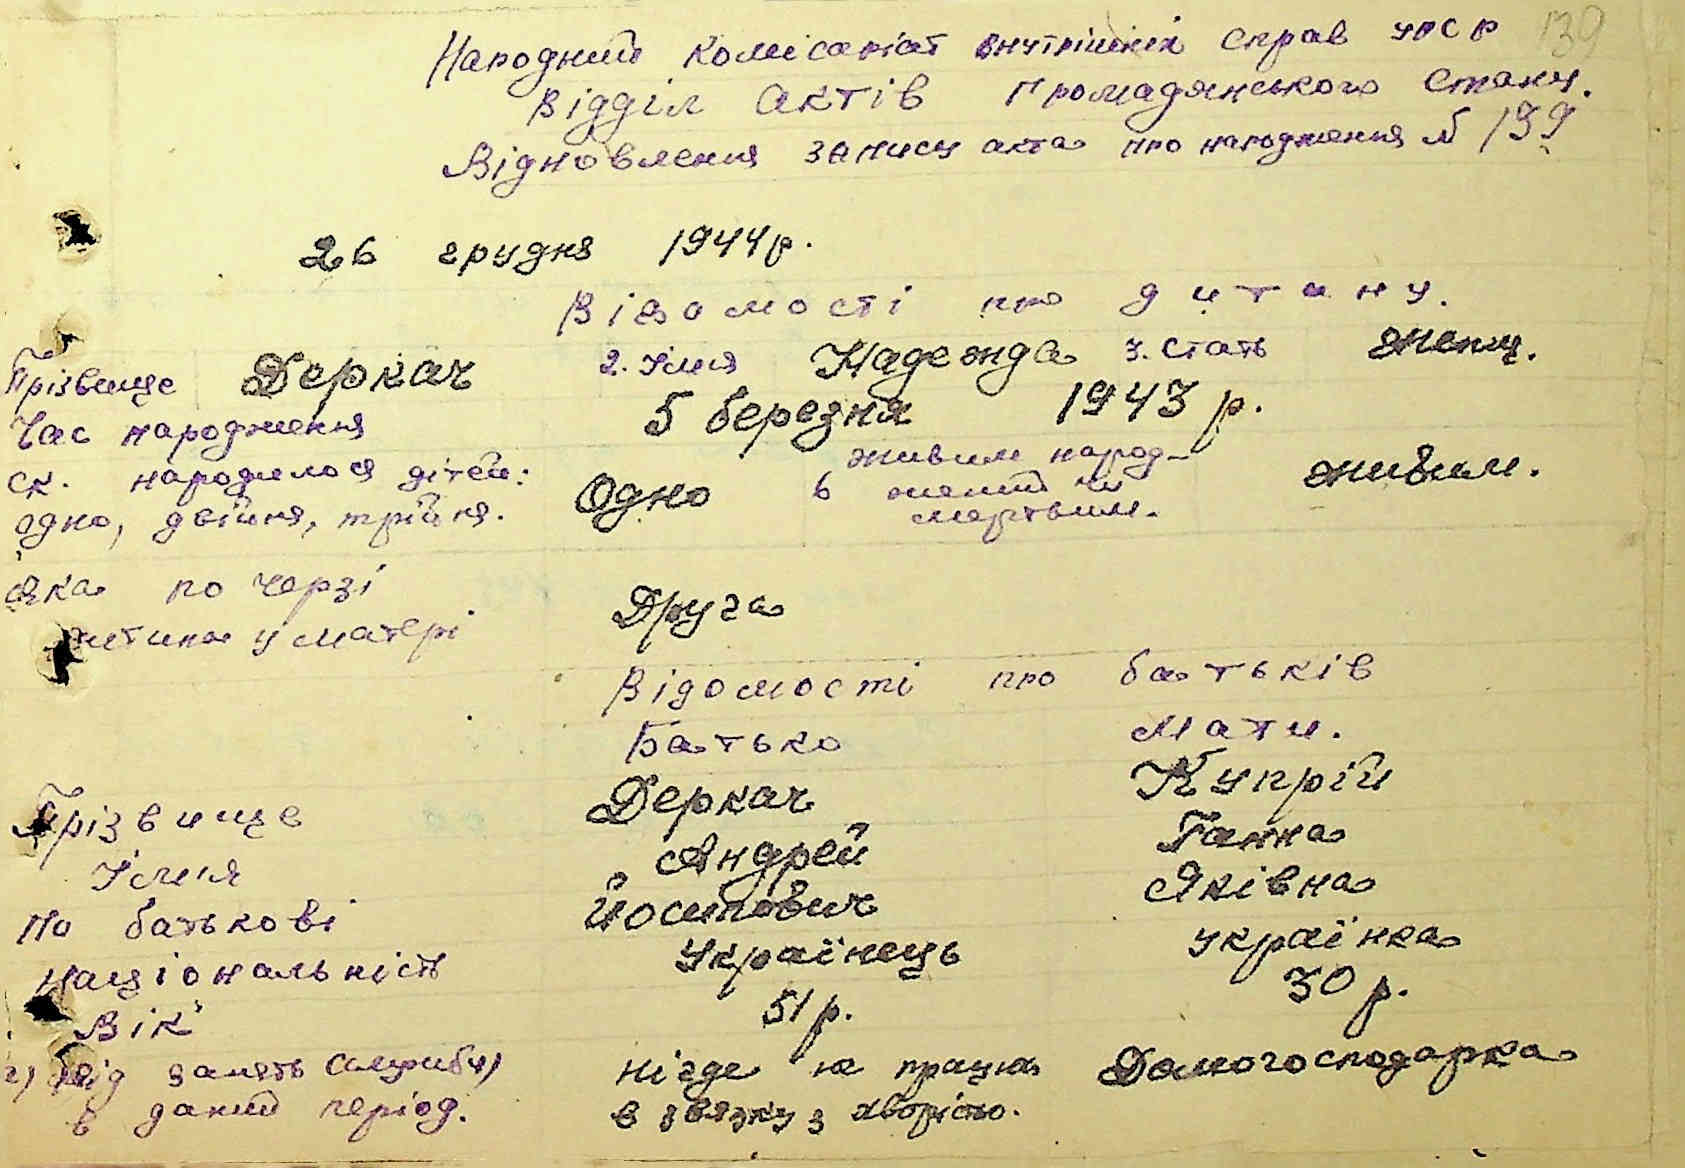 139
Народний комісаріат внутрішніх справ УРСР
Відділ Актів Громадянського стану.
Відновлення запису акта про народження № 139
26 грудня 1944 р.
Відомості про дитину.
Прізвище Деркач 2. Ім'я Надежда 3. Стать женщ.
Час народження 5 березня 1943 р.
ск. народилося дітей: живим народ-
одно, двійня, трійня. Одно 6 жений чи живым.
мертвим.
яка по черзі
дитина у матері Друга
Відомості про батьків
Батько Мати.
Прізвище Деркач Купрій
Ім'я Андрей Ганна
По батькові Йосипович Яківна
Національність Українець Українка
Вік 51 р. 30 р.
г) рід занять (служби) нігде не працює Домогосподарка
в даний період. в звязку з хворістю.